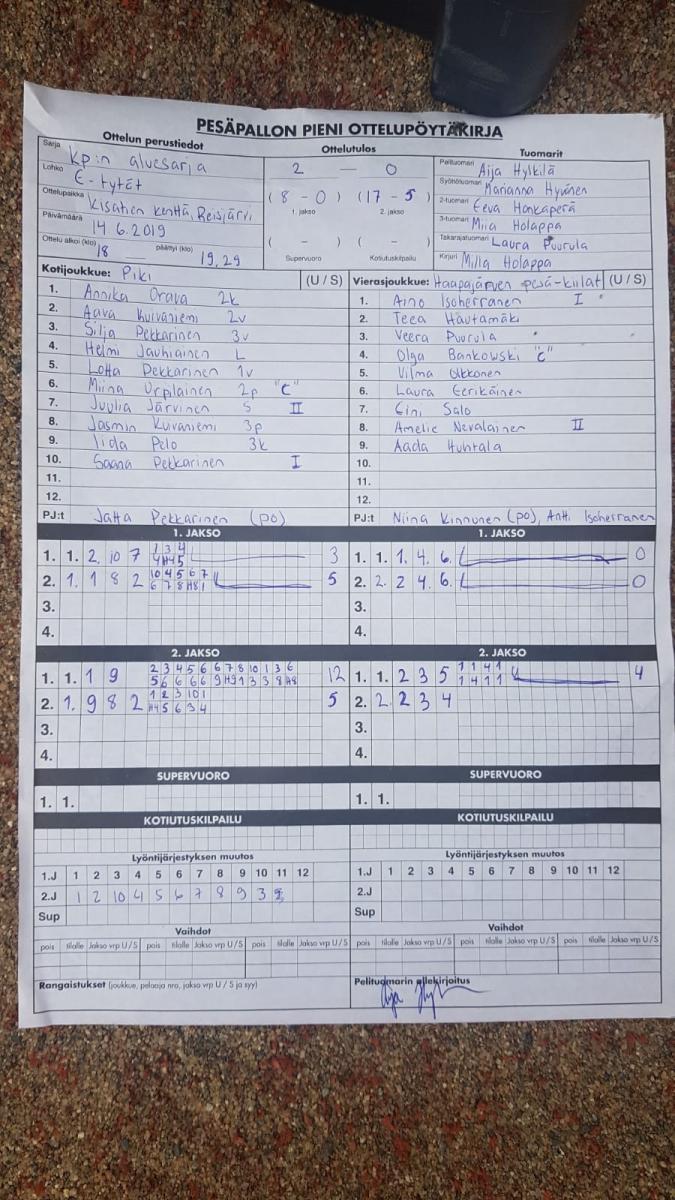 PESÄPALLON PIENI OTTELUPÖYTÄKIRJA
Ottelun perustiedot
Ottelutulos
Tuomarit
Sarja Kp:n aluesarja
Lohko E-tytöt
Ottelupaikka Kisatien kenttä, Reisjärvi
Päivämäärä 14 6.2019
Ottelu alkoi (klo) 18 päättyi (klo) 19,29
2 — 0
(8 - 0) (17 - 5)
1. jakso 2. jakso
( - ) ( - )
Supervuoro Kotiutuskilpailu
Pelituomari Aija Hylkilä
Syöttötuomari Marianna Hyvönen
2-tuomari Eeva Honkaperä
3-tuomari Miia Holappa
Takarajatuomari Laura Puurula
Kirjuri Milla Holappa
Kotijoukkue: Piki (U / S)
1. Annika Orava 2k
2. Aava Kuivaniemi 2v
3. Silja Pekkarinen 3v
4. Helmi Jauhiainen L
5. Lotta Pekkarinen 1v
6. Miina Urpilainen 2p "C"
7. Juulia Järvinen S II
8. Jasmin Kuivaniemi 3p
9. Iida Pelo 3k
10. Saana Pekkarinen I
11.
12.
PJ:t Jatta Pekkarinen (po)
Vierasjoukkue: Haapajärven pesä-kiilat (U / S)
1. Aino Isoherranen I
2. Teea Hautamäki
3. Veera Puurula
4. Olga Bankowski "C"
5. Vilma Olkkonen
6. Laura Eerikäinen
7. Eini Salo
8. Amelie Nevalainen II
9. Aada Huhtala
10.
11.
12.
PJ:t Niina Kinnunen (po), Antti Isoherranen
1. JAKSO
1. 1. 2 10 7 1 3 4 3
4 H4 5
2. 1. 1 8 2 10 4 5 6 7 5
6 7 8 H8 1
3.
4.
1. JAKSO
1. 1. 1. 4. 6. 0
2. 2. 2 4. 6. 0
3.
4.
2. JAKSO
1. 1. 1 9 2 3 4 5 6 6 7 8 10 1 3 6 12
5 6 6 6 6 9 H9 1 3 3 8 H8
2. 1. 9 8 2 1 2 3 10 1 5
H4 5 6 3 4
3.
4.
2. JAKSO
1. 1. 2 3 5 1 1 4 1 4
1 4 1 1
2. 2 2 3 4
3.
4.
SUPERVUORO
1. 1.
SUPERVUORO
1. 1.
KOTIUTUSKILPAILU
KOTIUTUSKILPAILU
Lyöntijärjestyksen muutos
1.J 1 2 3 4 5 6 7 8 9 10 11 12
2.J 1 2 10 4 5 6 7 8 9 3
Sup
Lyöntijärjestyksen muutos
1.J 1 2 3 4 5 6 7 8 9 10 11 12
2.J
Sup
Vaihdot
pois tilalle Jakso vrp U / S pois tilalle Jakso vrp U / S pois tilalle Jakso vrp U / S
Vaihdot
pois tilalle Jakso vrp U / S pois tilalle Jakso vrp U / S pois tilalle Jakso vrp U / S
Rangaistukset (joukkue, pelaaja nro, jakso vrp U / S ja syy)
Pelituomarin allekirjoitus